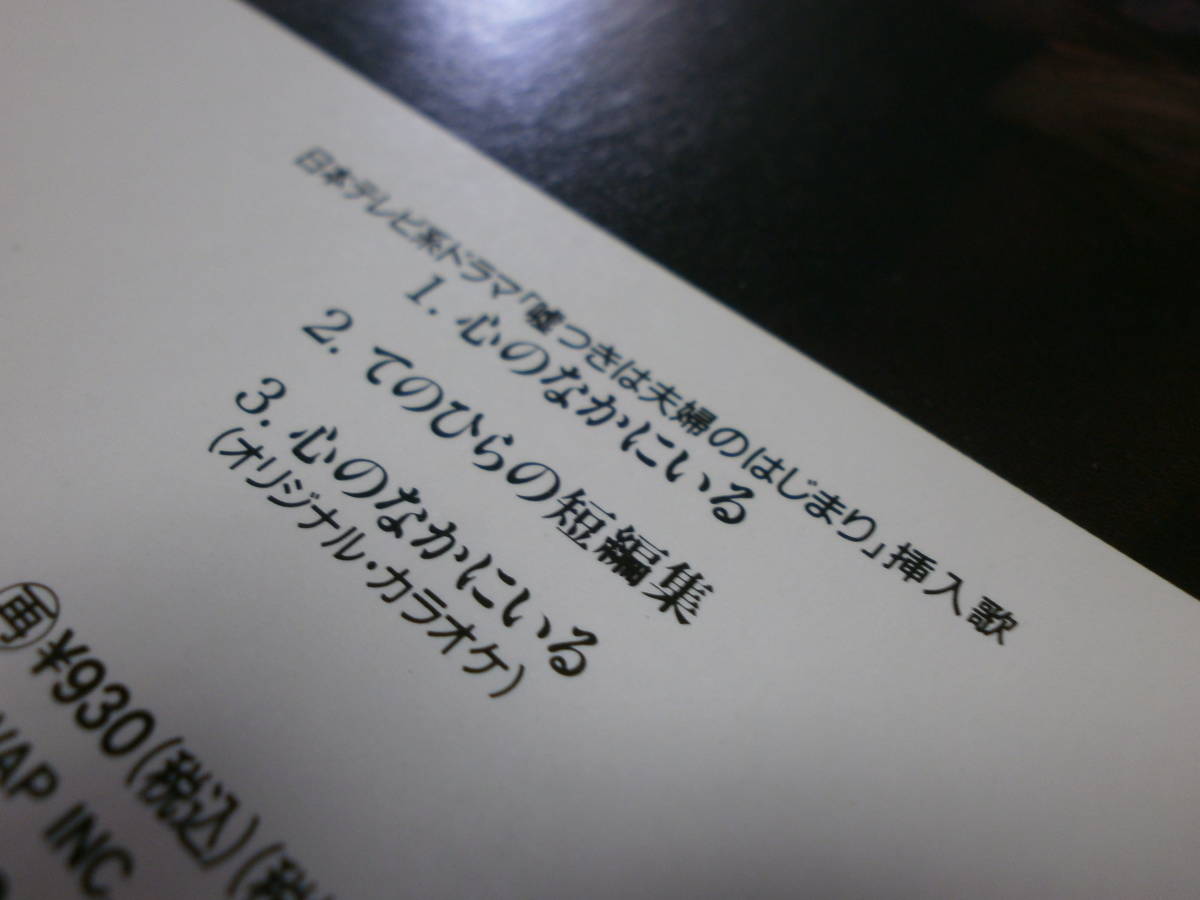 日本テレビ系ドラマ「嘘つきは夫婦のはじまり」挿入歌
1. 心のなかにいる
2. てのひらの短編集
3. 心のなかにいる
(オリジナル・カラオケ)
再 ¥930(税込)(税
VAP INC